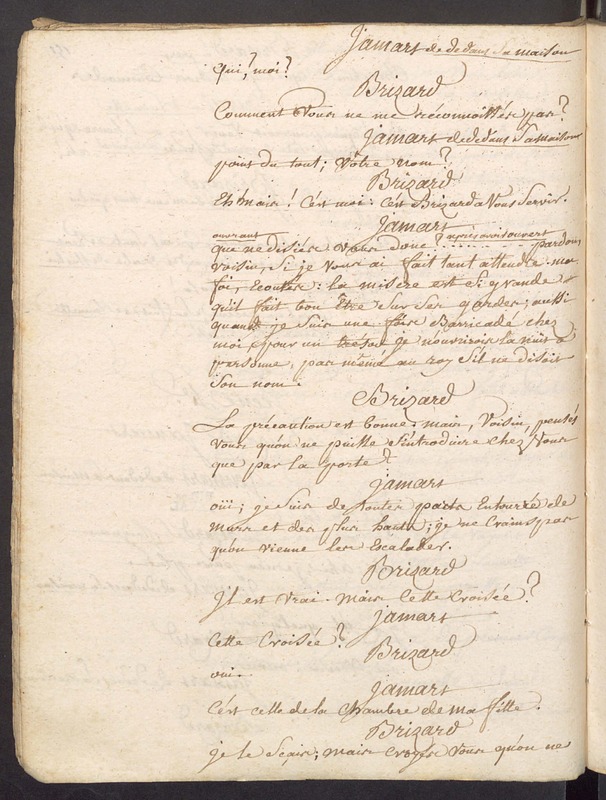 Jamars de dedans sa maison
Qui? moi?
Brizard
Comment Vous ne me réconnoittés pas?
Jamars de dedans sa maison
point du tout; Vôtre nom?
Brizard
Eh! mais! C'est moi: C'est Brizard a Vous Servir.
Jamars
ouvrant
que ne disiés Vous donc? après avoir ouvert pardon,
voisin, Si je Vous ai fait tant attendre. ma
foi, écoutés: la misere est Si grande
qu'il fait bon être Sur Ses gardes; aussi
quand je Suis une fois Barricadé chez
moi, pour un trésor je n'ouvrirois la nuit a
personne, pas même au roy S'il ne disoit
Son nom.
Brizard
La précaution est bonne. mais, Voisin, pensés
Vous qu'on ne puisse S'introduire chez Vous
que par la porte?
Jamars
oüi; je Suis de toutes parts Entourré de
murs et des plus hauts; je ne Crains pas
qu'on vienne les Escalader.
Brizard
Il est vrai. Mais Cette Croisée?
Jamars
Cette Croisée?
Brizard
oui.
Jamars
C'est celle de la Chambre de ma fille.
Brizard
je le Sçais; mais croyés Vous qu'on ne